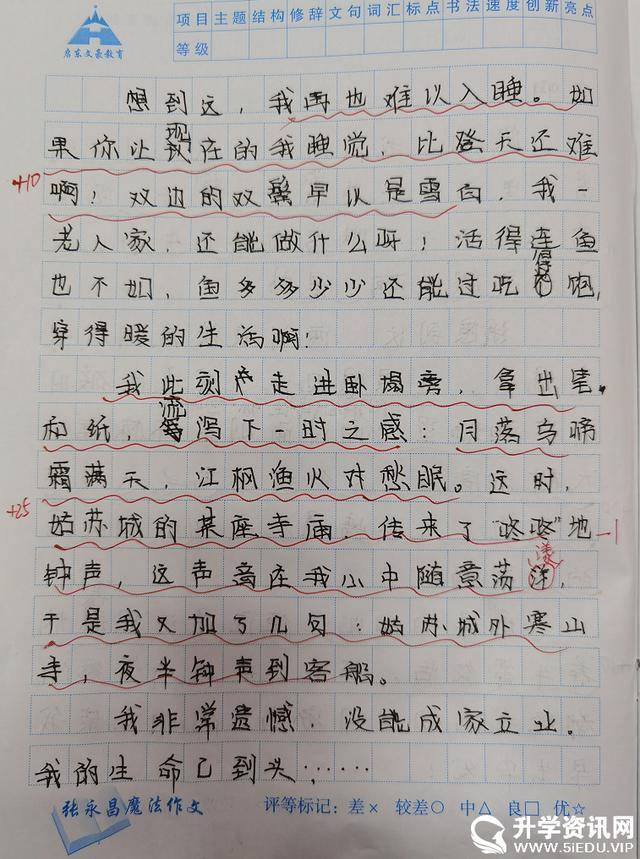 启东文豪教育
项目 主题 结构 修辞 文句 词汇 标点 书法 速度 创新 亮点
等级
想到这，我再也难以入睡。如
果你让现在的我睡觉，比登天还难
+10
啊！双边的双鬓早以是雪白，我一
老人家，还能做什么呀！活得连鱼
也不如，鱼多多少少还能过吃得饱，
穿得暖的生活啊！
我此刻走进卧塌旁，拿出笔
和纸，流泻下一时之感：月落乌啼
霜满天，江枫渔火对愁眠。这时，
+25
姑苏城的某座寺庙，传来了“咚咚”地
-1
钟声，这声音在我心中随意荡漾，
于是我又加了几句：姑苏城外寒山
寺，夜半钟声到客船。
我非常遗憾，没能成家立业。
我的生命已到头……
张永昌魔法作文
评等标记：差× 较差○ 中△ 良□ 优☆
升学资讯网
WWW.5IEDU.VIP